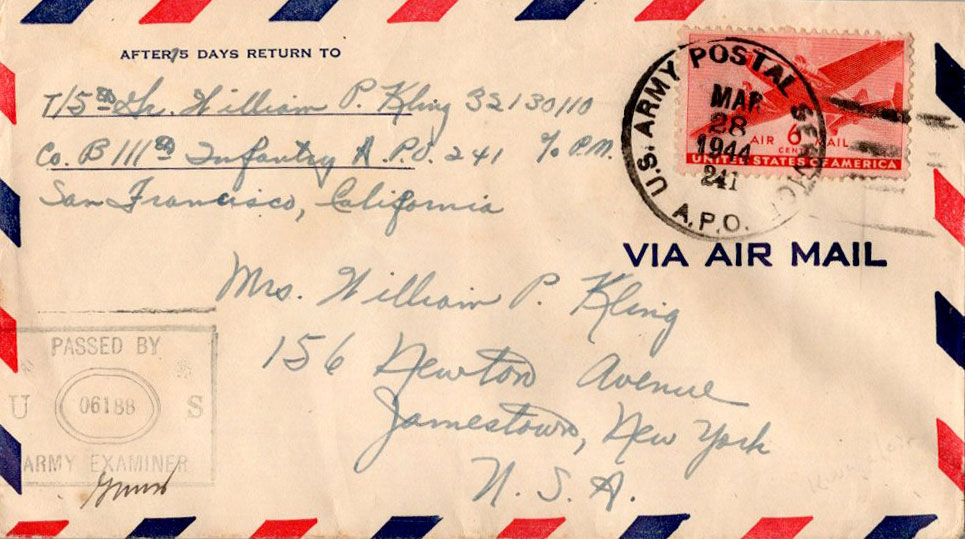 AFTER 5 DAYS RETURN TO
T/5th Gr. William P. Kling 32130110
Co. B 111th Infantry A.P.O. 241 c/o P.M.
San Francisco, California
U.S. ARMY POSTAL SERVICE
MAR
28
1944
241
A.P.O.
AIR 6 MAIL
CENTS
UNITED STATES OF AMERICA
VIA AIR MAIL
Mrs. William P. Kling
156 Newton Avenue
Jamestown, New York
U. S. A.
PASSED BY
U 06188 S
ARMY EXAMINER